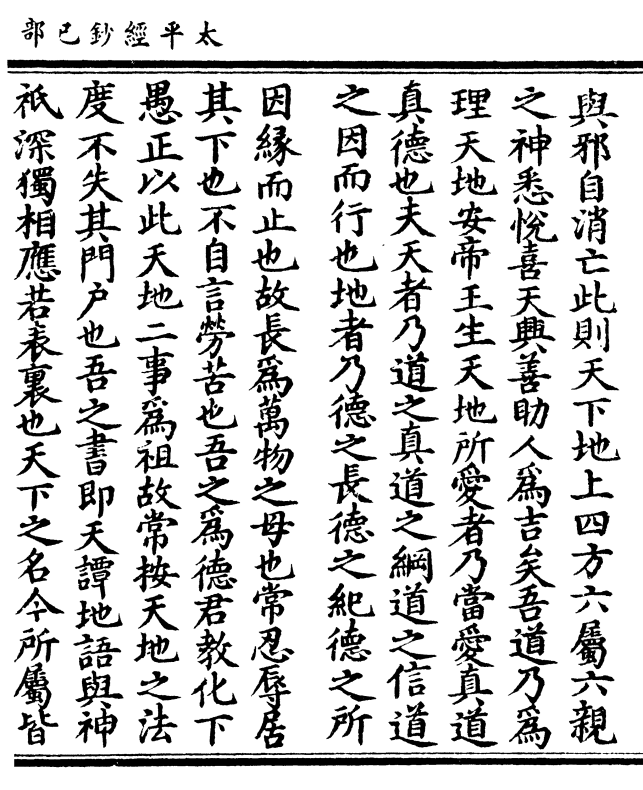 太平經鈔已部
與邪自消亡此則天下地上四方六屬六親
之神悉悅喜天興善助人為吉矣吾道乃為
理天地安帝王生天地所愛者乃當愛真道
真德也夫天者乃道之真道之綱道之信道
之因而行也地者乃德之長德之紀德之所
因緣而止也故長為萬物之母也常忍辱居
其下也不自言勞苦也吾之為德君教化下
愚正以此天地二事為祖故常按天地之法
度不失其門戶也吾之書即天譚地語與神
祇深獨相應若表裏也天下之名今所屬皆